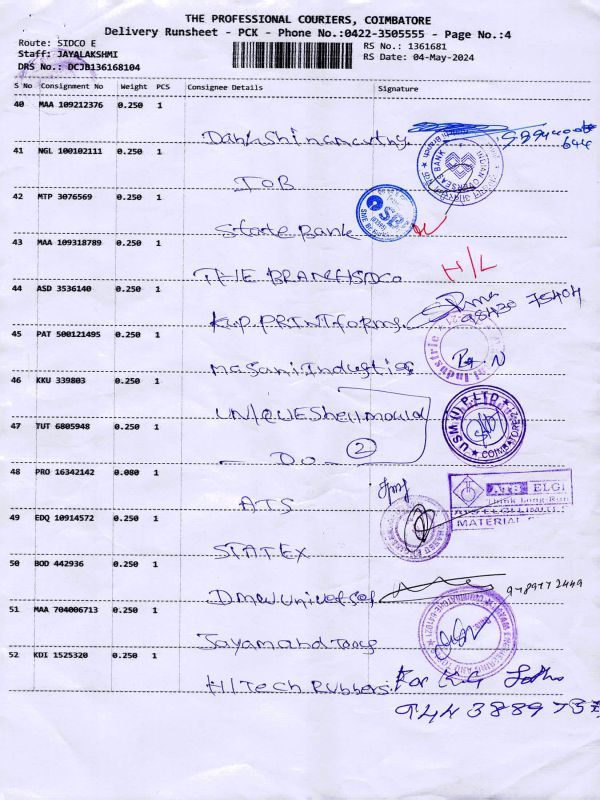 THE PROFESSIONAL COURIERS, COIMBATORE
Delivery Runsheet - PCK - Phone No.:0422-3505555 - Page No.:4
Route: SIDCO E
Staff: JAYALAKSHMI
DRS No.: DCJB136168104
RS No.: 1361681
RS Date: 04-May-2024
S No Consignment No Weight PCS Consignee Details Signature
40 MAA 109212376 0.250 1
41 NGL 100102111 0.250 1
INDIAN OVERSEAS BANK
IOB
42 MTP 3076569 0.250 1
SBI
State Bank
43 MAA 109318789 0.250 1
THE BRANCH SIDCO H/L
44 ASD 3536140 0.250 1
98430 75404
K.W.P. PRINT forms
45 PAT 500121495 0.250 1
Masani Industries
46 KKU 339803 0.250 1
UNIQUE Shell mould
U.S.M (I) P. LTD
COIMBATORE
47 TUT 6805948 0.250 1
Do 2
48 PRO 16342142 0.080 1
ATS
ATS ELGI
Think Long-Run
MATERIAL
49 EDQ 10914572 0.250 1
STATEX
50 BOD 442936 0.250 1
DMW Universal
51 MAA 704006713 0.250 1
52 KDI 1525320 0.250 1
HiTech Rubbers For K.G